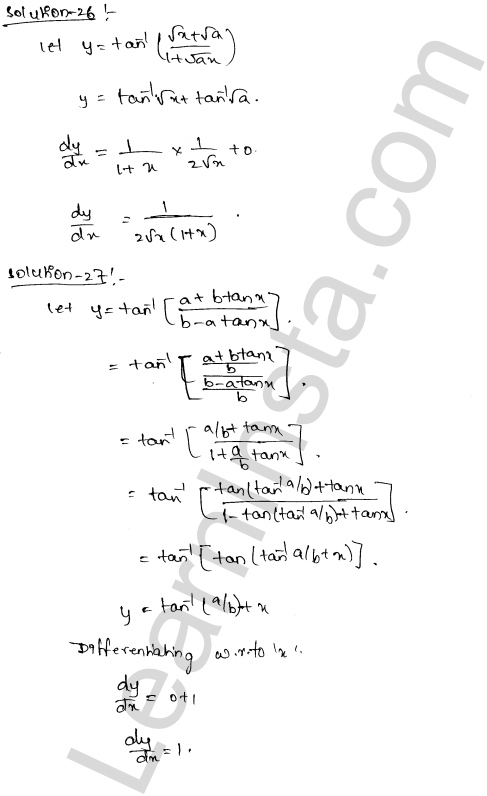 Solution-26 :-
Let y = tan⁻¹ (√x+√a / 1+√ax)
y = tan⁻¹√x + tan⁻¹√a.
dy/dx = 1/1+x × 1/2√x + 0.
dy/dx = 1/2√x(1+x) .
Solution-27 :-
Let y = tan⁻¹ [a+btanx / b-atanx] .
= tan⁻¹ [a+btanx/b / b-atanx/b] .
= tan⁻¹ [a/b+tanx / 1+a/b tanx] .
= tan⁻¹ [tan(tan⁻¹a/b)+tanx / 1-tan(tan⁻¹a/b)+tanx] .
= tan⁻¹ [tan(tan⁻¹a/b+x)] .
y = tan⁻¹(a/b)+x
Differentiating w.r.to 'x'.
dy/dx = 0+1
dy/dx = 1.
LearnInsta.com